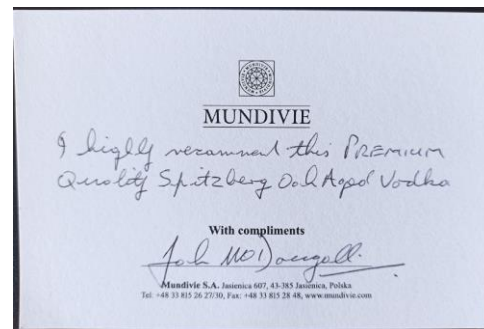 MUNDIVIE
I highly recommend this PREMIUM
Quality Spitzberg Oak Aged Vodka
With compliments
John McDougall.
Mundivie S.A. Jasienica 607, 43-385 Jasienica, Polska
Tel: +48 33 815 26 27/30, Fax: +48 33 815 28 48, www.mundivie.com